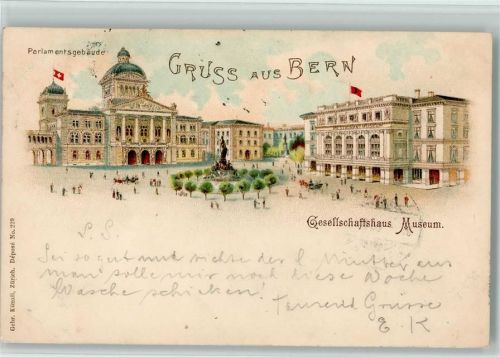 Parlamentsgebäude
GRUSS AUS BERN
Gesellschaftshaus Museum.
L. S.
Sei so gut und richte der l. Mutter aus
man solle mir noch diese Woche
Wäsche schicken!
Tausend Grüsse
E. K
Gebr. Künzli, Zürich, Déposé No. 219